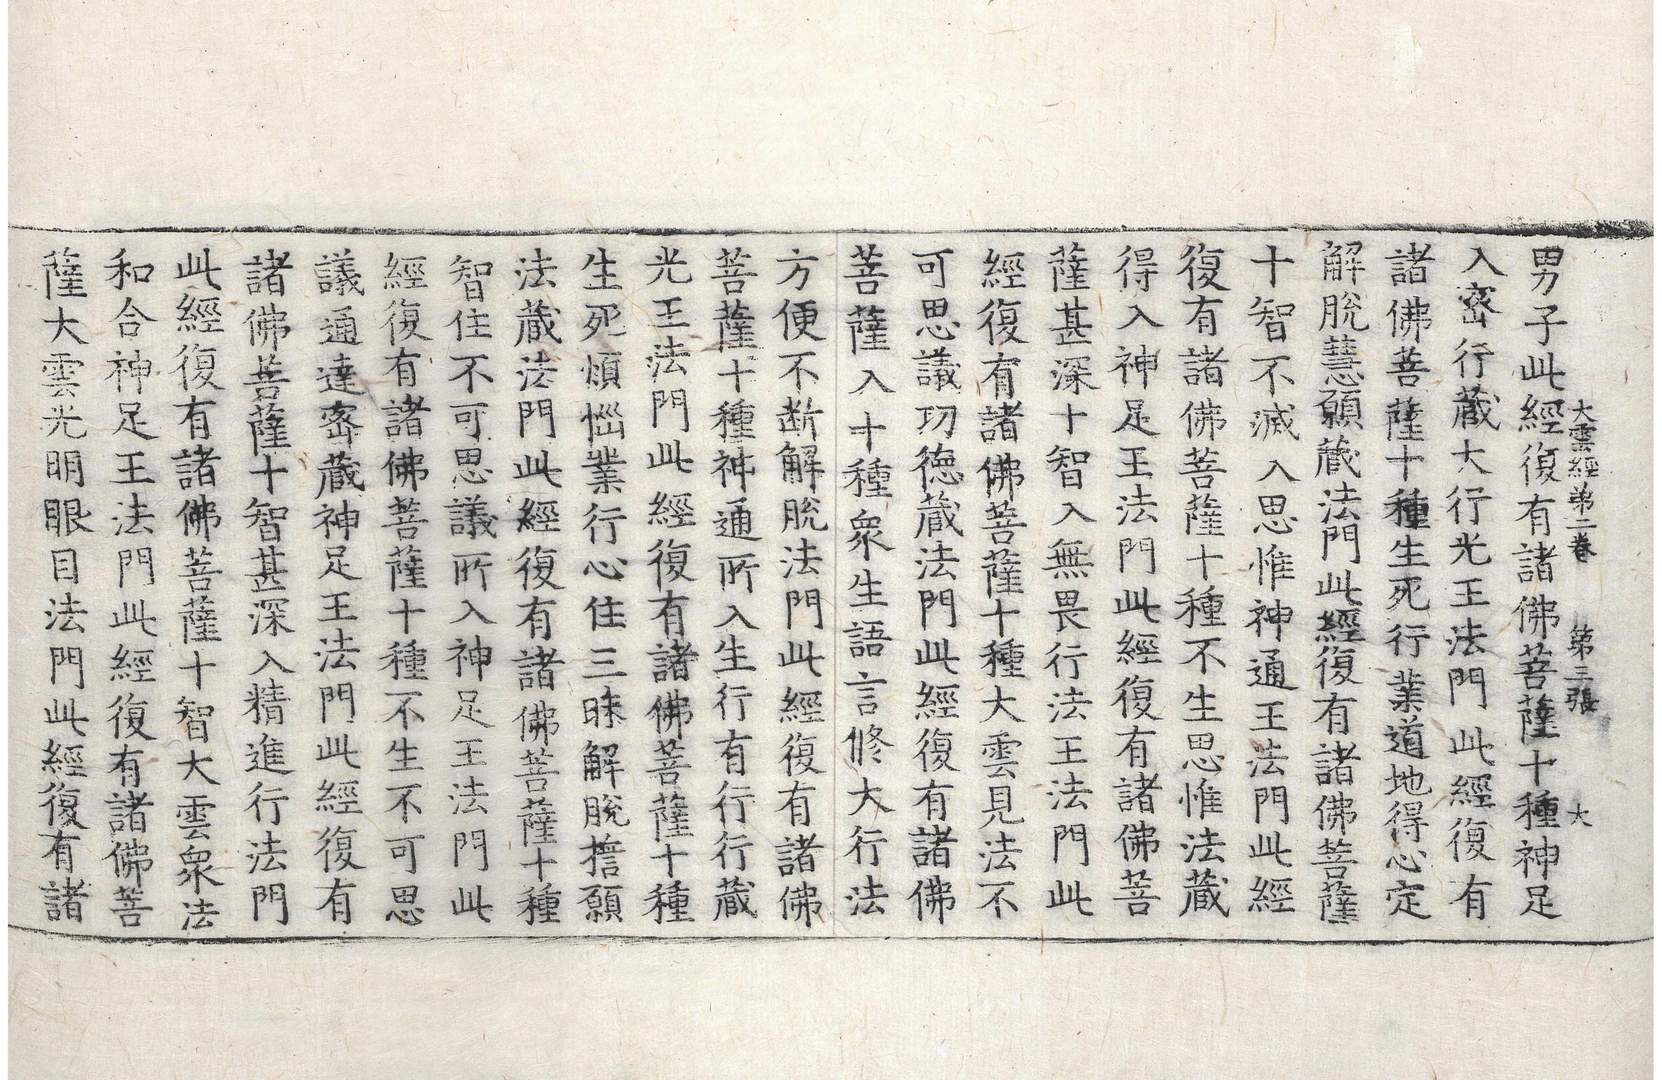 大雲經第二卷　第三張　大
男子此經復有諸佛菩薩十種神足
入宻行藏大行光王法門此經復有
諸佛菩薩十種生死行業道地得心定
解脫慧願藏法門此經復有諸佛菩薩
十智不滅入思惟神通王法門此經
復有諸佛菩薩十種不生思惟法藏
得入神足王法門此經復有諸佛菩
薩甚深十智入無畏行法王法門此
經復有諸佛菩薩十種大雲見法不
可思議功德藏法門此經復有諸佛
菩薩入十種衆生語言修大行法
方便不断解脫法門此經復有諸佛
菩薩十種神通所入生行有行行藏
光王法門此經復有諸佛菩薩十種
生死煩惱業行心住三昧解脫擔願
法藏法門此經復有諸佛菩薩十種
智住不可思議所入神足王法門此
經復有諸佛菩薩十種不生不可思
議通達宻藏神足王法門此經復有
諸佛菩薩十智甚深入精進行法門
此經復有諸佛菩薩十智大雲衆法
和合神足王法門此經復有諸佛菩
薩大雲光明眼目法門此經復有諸